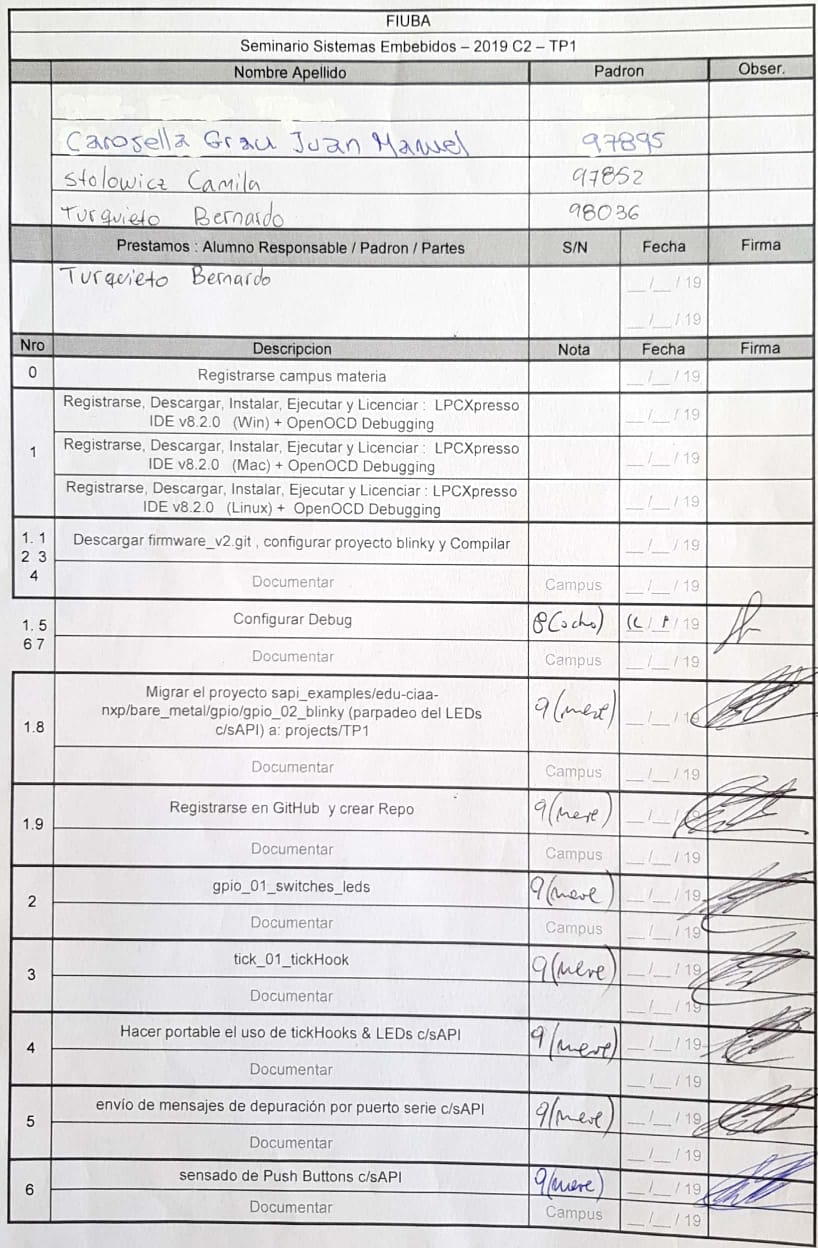 FIUBA
Seminario Sistemas Embebidos – 2019 C2 – TP1
Nombre Apellido Padron Obser.
Carosella Grau Juan Manuel 97895
Stolowicz Camila 97852
Turquieto Bernardo 98036
Prestamos : Alumno Responsable / Padron / Partes S/N Fecha Firma
Turquieto Bernardo __/__/19
__/__/19
Nro Descripcion Nota Fecha Firma
0 Registrarse campus materia __/__/19
Registrarse, Descargar, Instalar, Ejecutar y Licenciar : LPCXpresso
IDE v8.2.0 (Win) + OpenOCD Debugging __/__/19
1 Registrarse, Descargar, Instalar, Ejecutar y Licenciar : LPCXpresso
IDE v8.2.0 (Mac) + OpenOCD Debugging __/__/19
Registrarse, Descargar, Instalar, Ejecutar y Licenciar : LPCXpresso
IDE v8.2.0 (Linux) + OpenOCD Debugging __/__/19
1. 1
2 3
4
Descargar firmware_v2.git , configurar proyecto blinky y Compilar __/__/19
Documentar Campus __/__/19
1. 5
6 7
Configurar Debug 8(ocho) /19
Documentar Campus __/__/19
1.8
Migrar el proyecto sapi_examples/edu-ciaa-
nxp/bare_metal/gpio/gpio_02_blinky (parpadeo del LEDs
c/sAPI) a: projects/TP1
9(nueve) __/__/19
Documentar Campus __/__/19
1.9 Registrarse en GitHub y crear Repo 9(nueve) __/__/19
Documentar Campus __/__/19
2 gpio_01_switches_leds 9(nueve) __/__/19
Documentar Campus __/__/19
3 tick_01_tickHook 9(nueve) __/__/19
Documentar __/__/19
4 Hacer portable el uso de tickHooks & LEDs c/sAPI 9(nueve) __/__/19
Documentar __/__/19
5 envío de mensajes de depuración por puerto serie c/sAPI 9(nueve) __/__/19
Documentar __/__/19
6 sensado de Push Buttons c/sAPI 9(nueve) __/__/19
Documentar Campus __/__/19